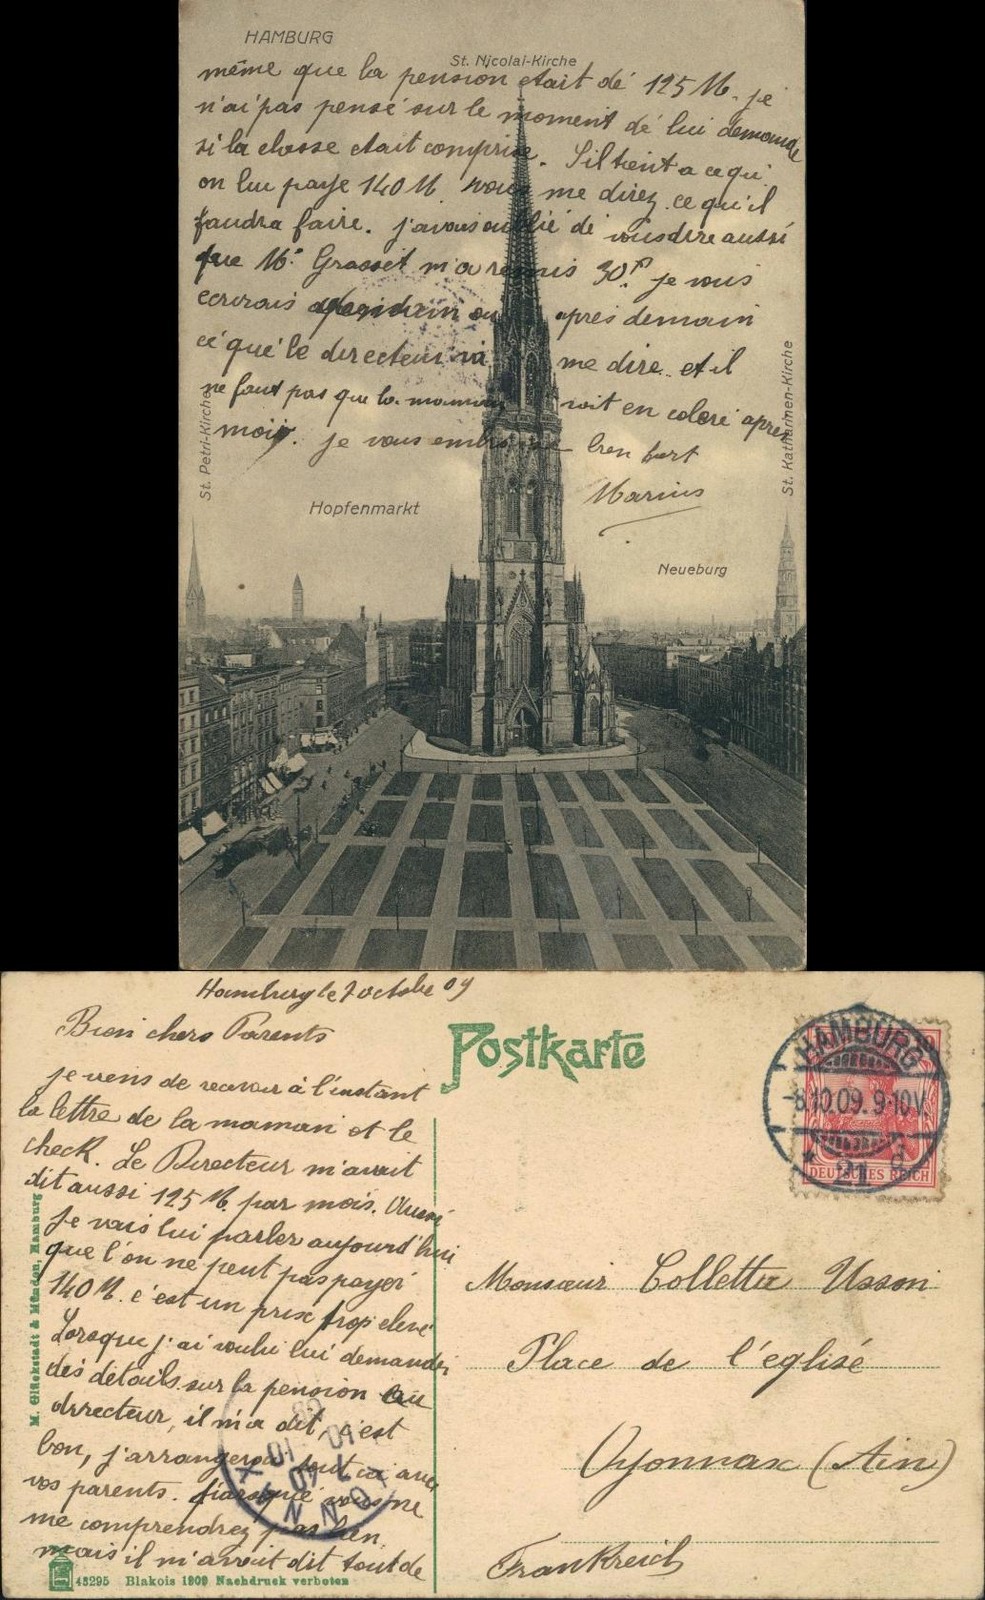 HAMBURG
St. Nicolai-Kirche
même que la pension etait dé 125 M. je
n'ai pas pensé sur le moment dé lui demande
si la chosse etait comprise. S'il tient a ce qu
on lui paye 140 M. vous me direz ce qu'il
faudra faire. j'avais oublié dé vous dire aussi
que Mr Grasset m'a remis 30f. je vous
ecrirais demain ou après demain
cé qué le directeur va me dire et il
ne faut pas que la maman soit en coleré apres
moi. je vous embrasse bien fort
Marius
St. Petri-Kirche
St. Katharinen-Kirche
Hopfenmarkt
Neueburg
Hamburg le 7 octobre 09
Bien chers Parents
Postkarte
je viens de recevoir à l'instant
la lettre de la maman et le
check. Le Directeur m'avait
dit aussi 125 M. par mois. Aussi
je vais lui parler aujourd'hui
que l'on né peut pas payer
140 M. c'est un prix trop elevé
Lorsque j'ai voulu lui demander
des détails sur la pension au
directeur, il m'a dit, c'est
bon, j'arrangerai tout ca avec
vos parents. vous ne
me comprendrez pas bien,
mais il m'avait dit tout de
M. Glückstadt & Münden, Hamburg
43295 Blakois 1909 Nachdruck verboten
HAMBURG
-8.10.09. 9-10V.
* 21 d
DEUTSCHES REICH
Monsieur Collettu Usson
Place de l'eglisé
Oyonnax (Ain)
Frankreich